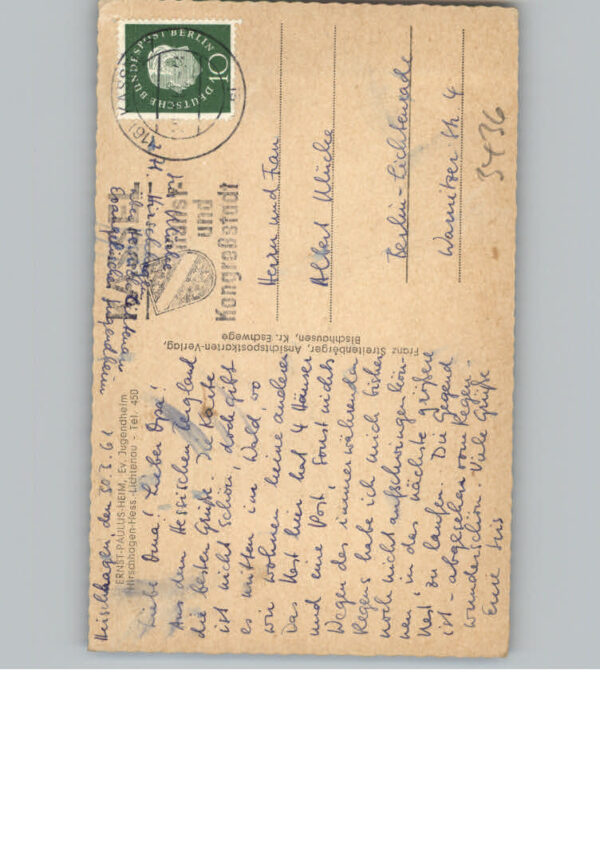 Hirschhagen, den 30.7.61
ERNST-PAULUS-HEIM, Ev. Jugendheim
Hirschhagen-Hess.-Lichtenau - Tel. 450
Liebe Oma! Lieber Opa!
Aus dem Hessischen Bergland
die besten Grüße. Die Karte
ist nicht schön, doch gibt
es mitten im Wald, wo
wir wohnen keine anderen
Das Nest hier hat 4 Häuser
und eine Post, sonst nichts
Wegen des immerwährenden
Regens habe ich mich bisher
noch nicht aufschwingen kön-
nen, in das nächste größere
Nest zu laufen. Die Gegend
ist - abgesehen vom Regen -
wunderschön. Viele Grüße
Eure
Franz Streitenberger, Ansichtspostkarten-Verlag,
Bischhausen, Kr. Eschwege
z.Zt. Hirschhagen
über Hess. Lichtenau
Evangelisches Jugendheim
und
Kongreßstadt
DEUTSCHE BUNDESPOST BERLIN
10
(16) KASSEL
Herrn und Frau
Albert Mücke
Berlin-Lichtenrade
Warnitzer Str. 4
3436